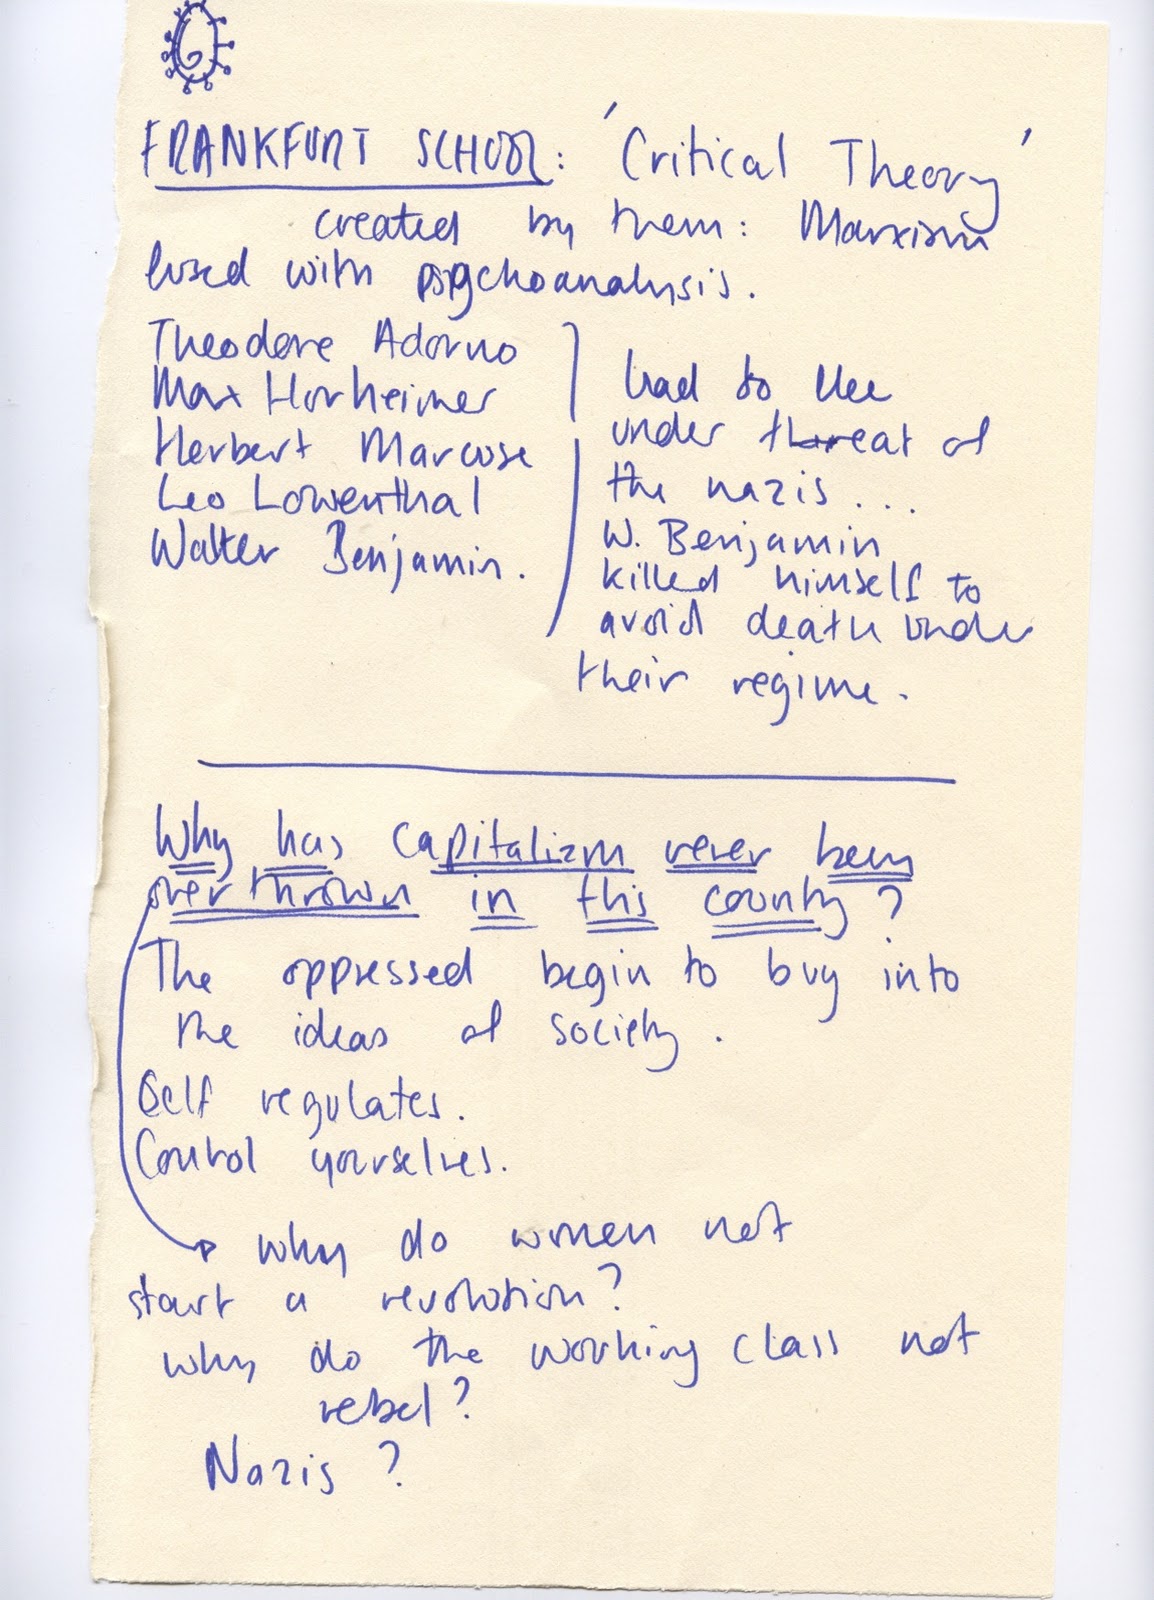 FRANKFURT SCHOOL: 'Critical Theory'
created by them: Marxism
fused with psychoanalysis.
Theodore Adorno
Max Horheimer
Herbert Marcuse
Leo Lowenthal
Walter Benjamin.
had to flee
under threat of
the nazis...
W. Benjamin
killed himself to
avoid death under
their regime.
Why has capitalizm never been
overthrown in this county?
The oppressed begin to buy into
the ideas of society.
Self regulates.
Control yourselves.
why do women not
start a revolution?
why do the working class not
rebel?
Nazis?